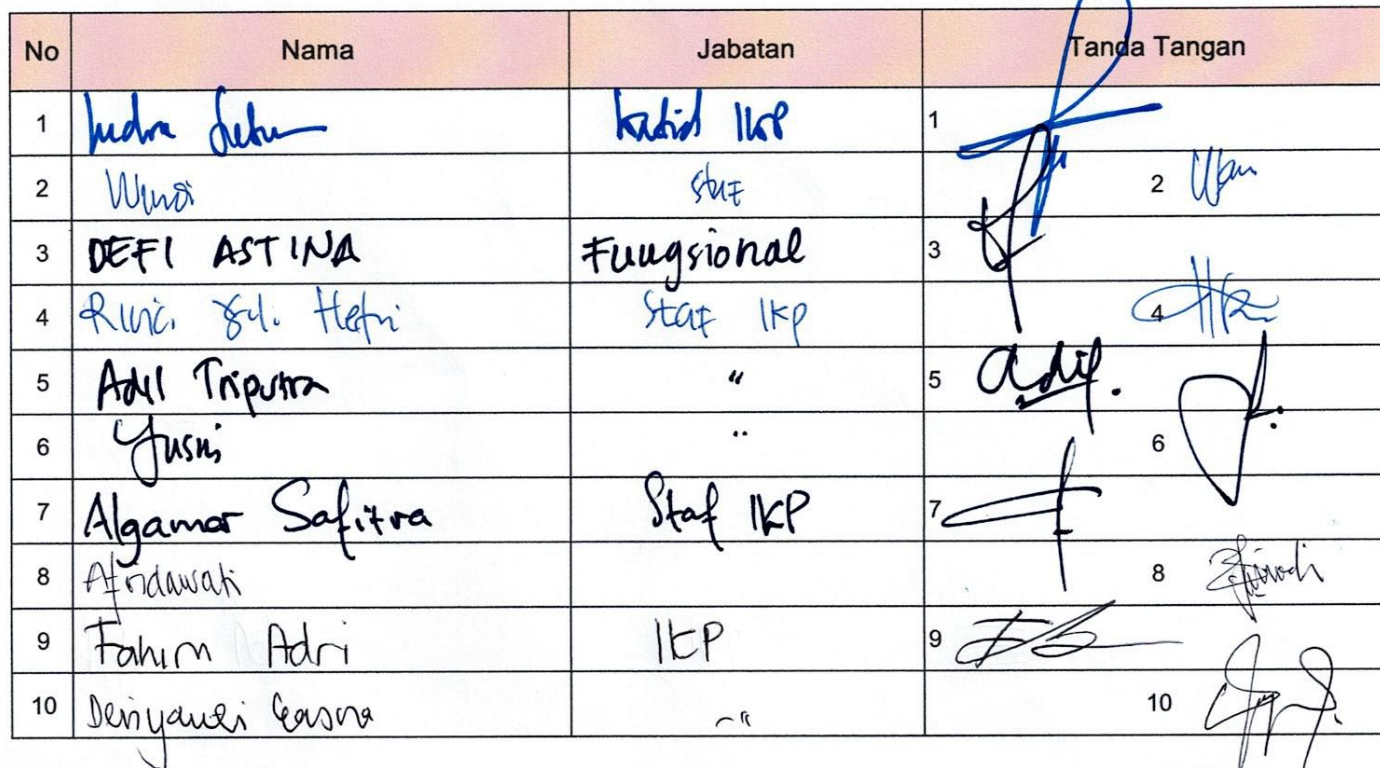 No Nama Jabatan Tanda Tangan
1 Indra Kabid IKP 1
2 Winda Staf 2
3 DEFI ASTINA Fungsional 3
4 Hefni Staf IKP 4
5 Adil Triputra " 5 adil.
6 Yusni " 6
7 Algamar Safitra Staf IKP 7
8 Afridawati 8
9 Fahim Adri IKP 9
10 10